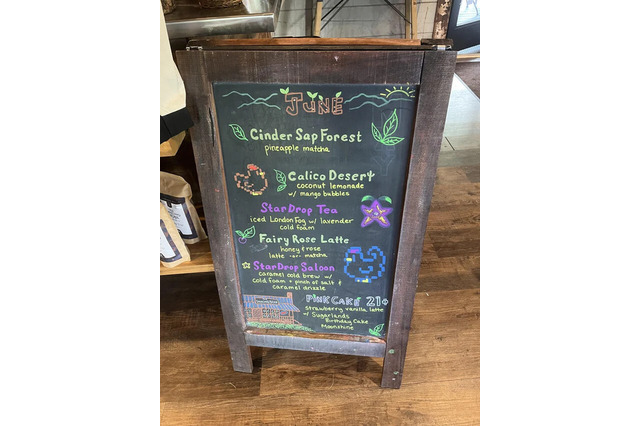 JUNE
Cinder Sap Forest
pineapple matcha
Calico Desert
coconut lemonade
w/ mango bubbles
StarDrop Tea
iced London Fog w/ lavender
cold foam
Fairy Rose Latte
honey & rose
latte -or- matcha
StarDrop Saloon
caramel cold brew w/
cold foam + pinch of salt &
caramel drizzle
Pink Cake 21+
strawberry vanilla latte
w/ Sugarlands
Birthday Cake
Moonshine